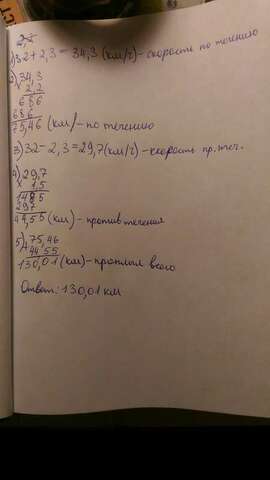 2,2
1) 32 + 2,3 = 34,3 (км/ч) - скорость по течению
2) 34,3
× 2,2
686
686
75,46 (км) - по течению
3) 32 - 2,3 = 29,7 (км/ч) - скорость пр. теч.
4) 29,7
× 1,5
1485
297
44,55 (км) - против течения
5) 75,46
+ 44 55
130,01 (км) - проплыл всего
Ответ: 130,01 км